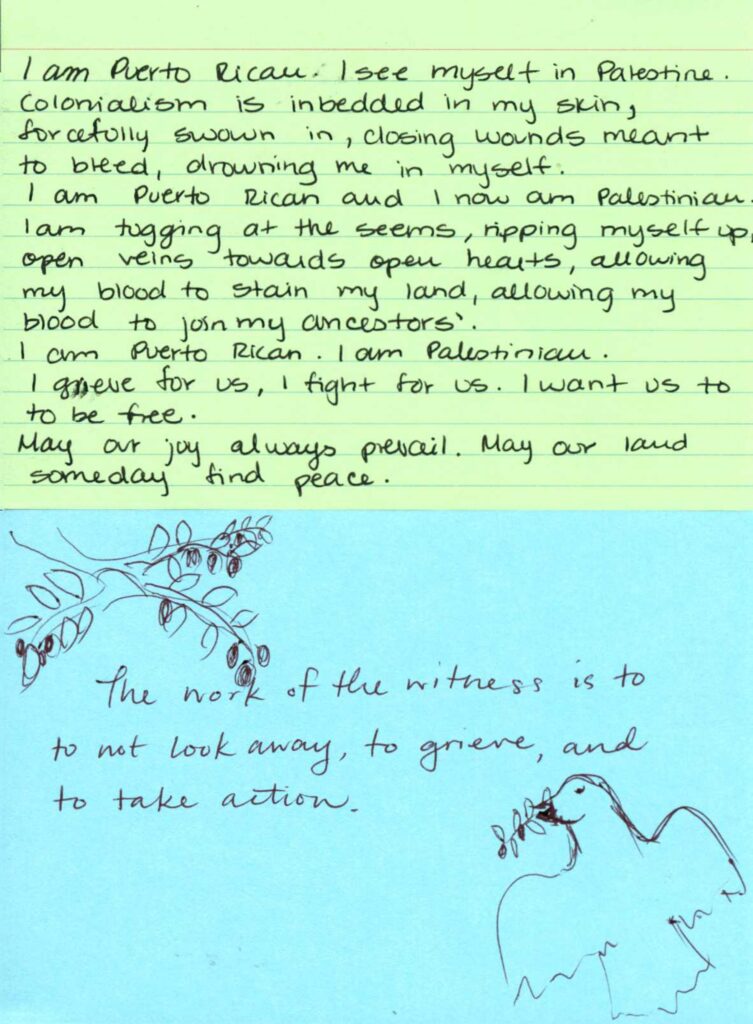 I am Puerto Rican. I see myself in Palestine.
Colonialism is inbedded in my skin,
forcefully swown in, closing wounds meant
to bleed, drowning me in myself.
I am Puerto Rican and I now am Palestinian.
I am tugging at the seems, ripping myself up,
open veins towards open hearts, allowing
my blood to stain my land, allowing my
blood to join my ancestors'.
I am Puerto Rican. I am Palestinian.
I grieve for us, I fight for us. I want us to
to be free.
May our joy always prevail. May our land
someday find peace.
The work of the witness is to
to not look away, to grieve, and
to take action.